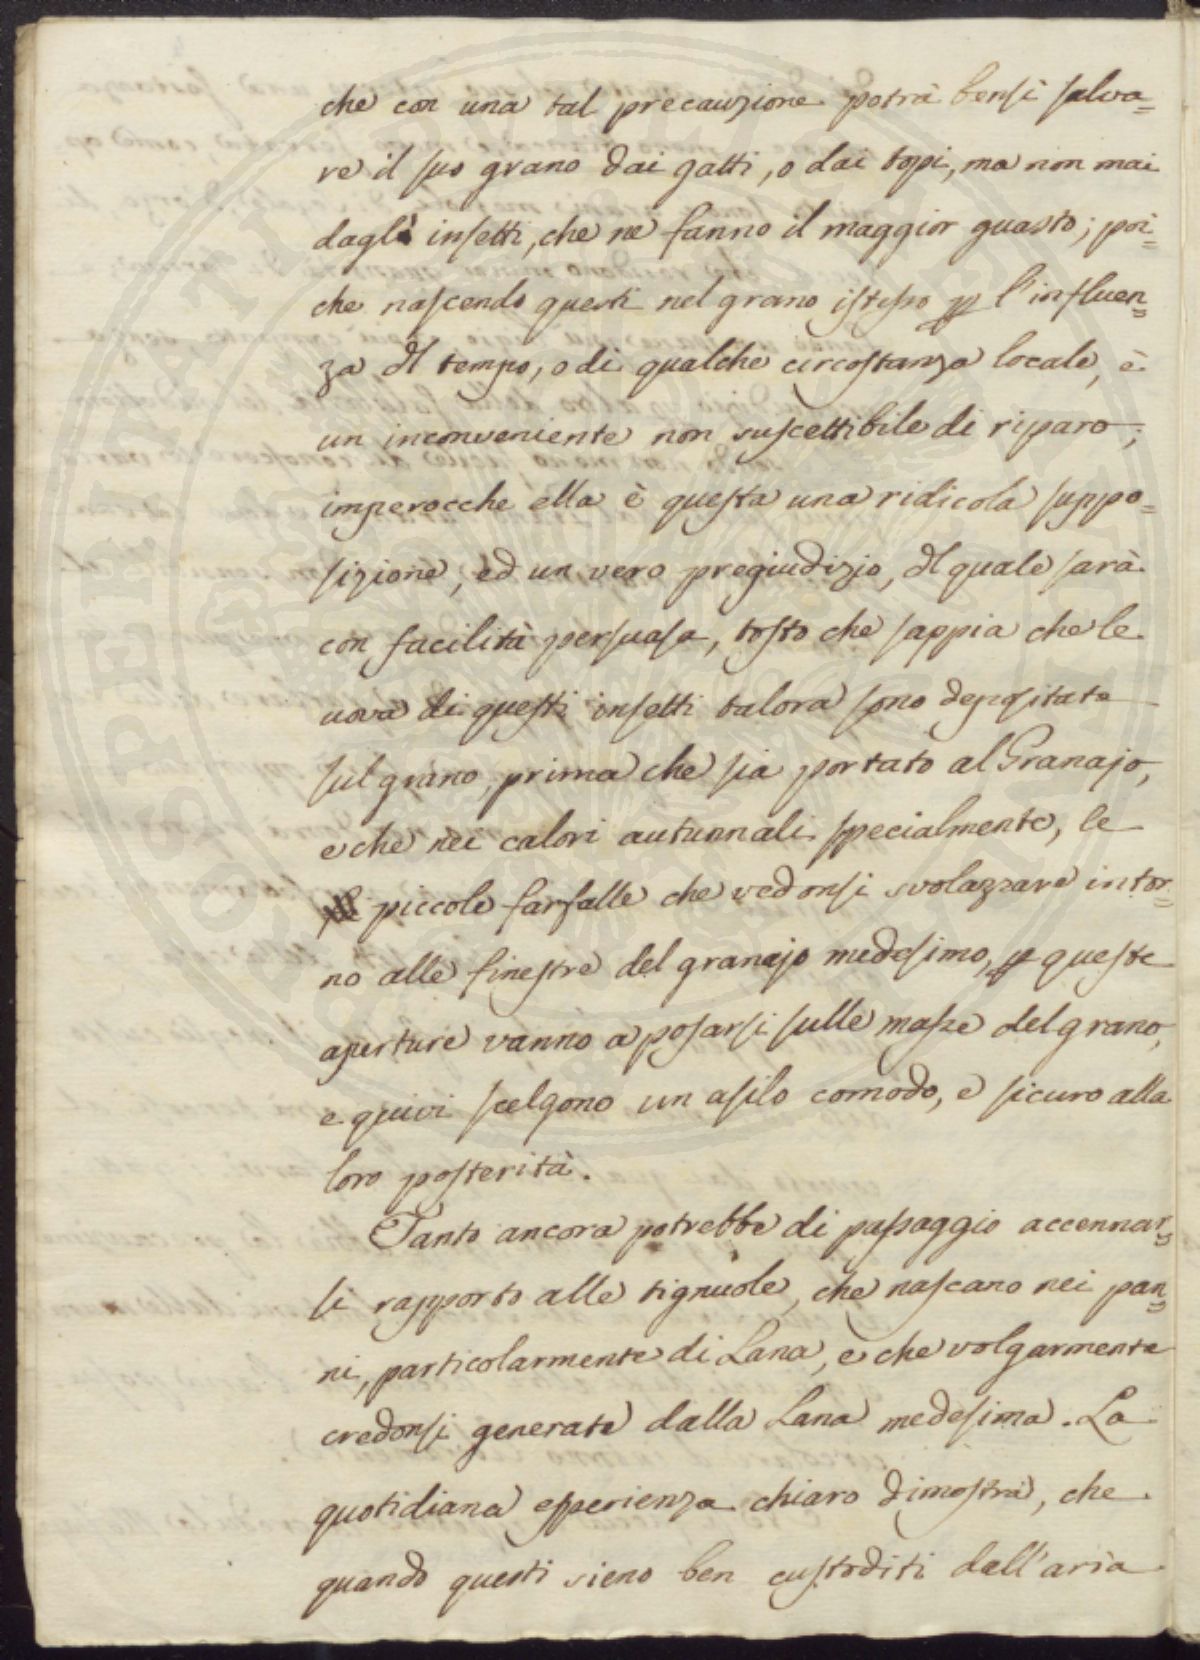 che con una tal precauzione potrà bensì salva=
re il suo grano dai gatti, o dai topi, ma non mai
dagl'insetti, che ne fanno il maggior guasto; poi=
che nascendo questi nel grano istesso p l'influen=
za dl tempo, o di qualche circostanza locale, è
un inconveniente non suscettibile di riparo;
imperocche ella è questa una ridicola suppo=
sizione, ed un vero pregiudizio, dl quale sarà
con facilità persuasa, tosto che sappia che le
uova di questi insetti talora sono depositate
sul grano, prima che sia portato al Granajo,
e che nei calori autunnali specialmente, le
piccole farfalle che vedonsi svolazzare intor=
no alle finestre del granajo medesimo, p queste
aperture vanno a posarsi sulle masse del grano,
e quivi scelgono un asilo comodo, e sicuro alla
loro posterità.
Tanto ancora potrebbe di passaggio accennar=
si rapporto alle tignuole, che nascano nei pan=
ni, particolarmente di Lana, e che volgarmente
credonsi generate dalla Lana medesima. La
quotidiana esperienza chiaro dimostra, che
quando questi sieno ben custoditi dall'aria